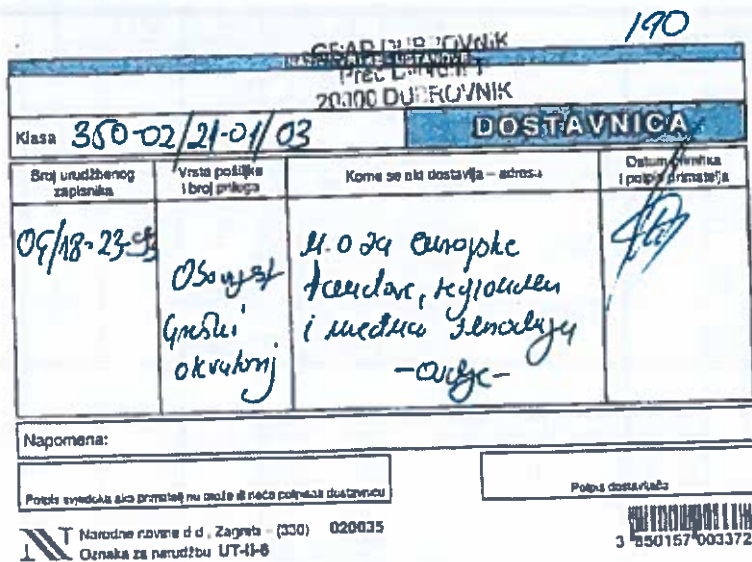 190
GRAD DUBROVNIK
20000 DUBROVNIK
Klasa 350-02/21-01/03
DOSTAVNICA
Broj urudžbenog zapisnika
Vrsta pošiljke i broj priloga
Kome se akt dostavlja – adresa
Datum primitka i potpis primatelja
09/18-23
Gradski
okvirnij
U.O za europske
fondove, regionalnu
i međun suradnju
-ovdje-
Napomena:
Potpis svjedoka ako primatelj ne može ili neće potpisati dostavnicu
Potpis dostavljača
Narodne novine d.d., Zagreb - (330) 020035
Oznaka za narudžbu UT-II-6
3 850157 003372